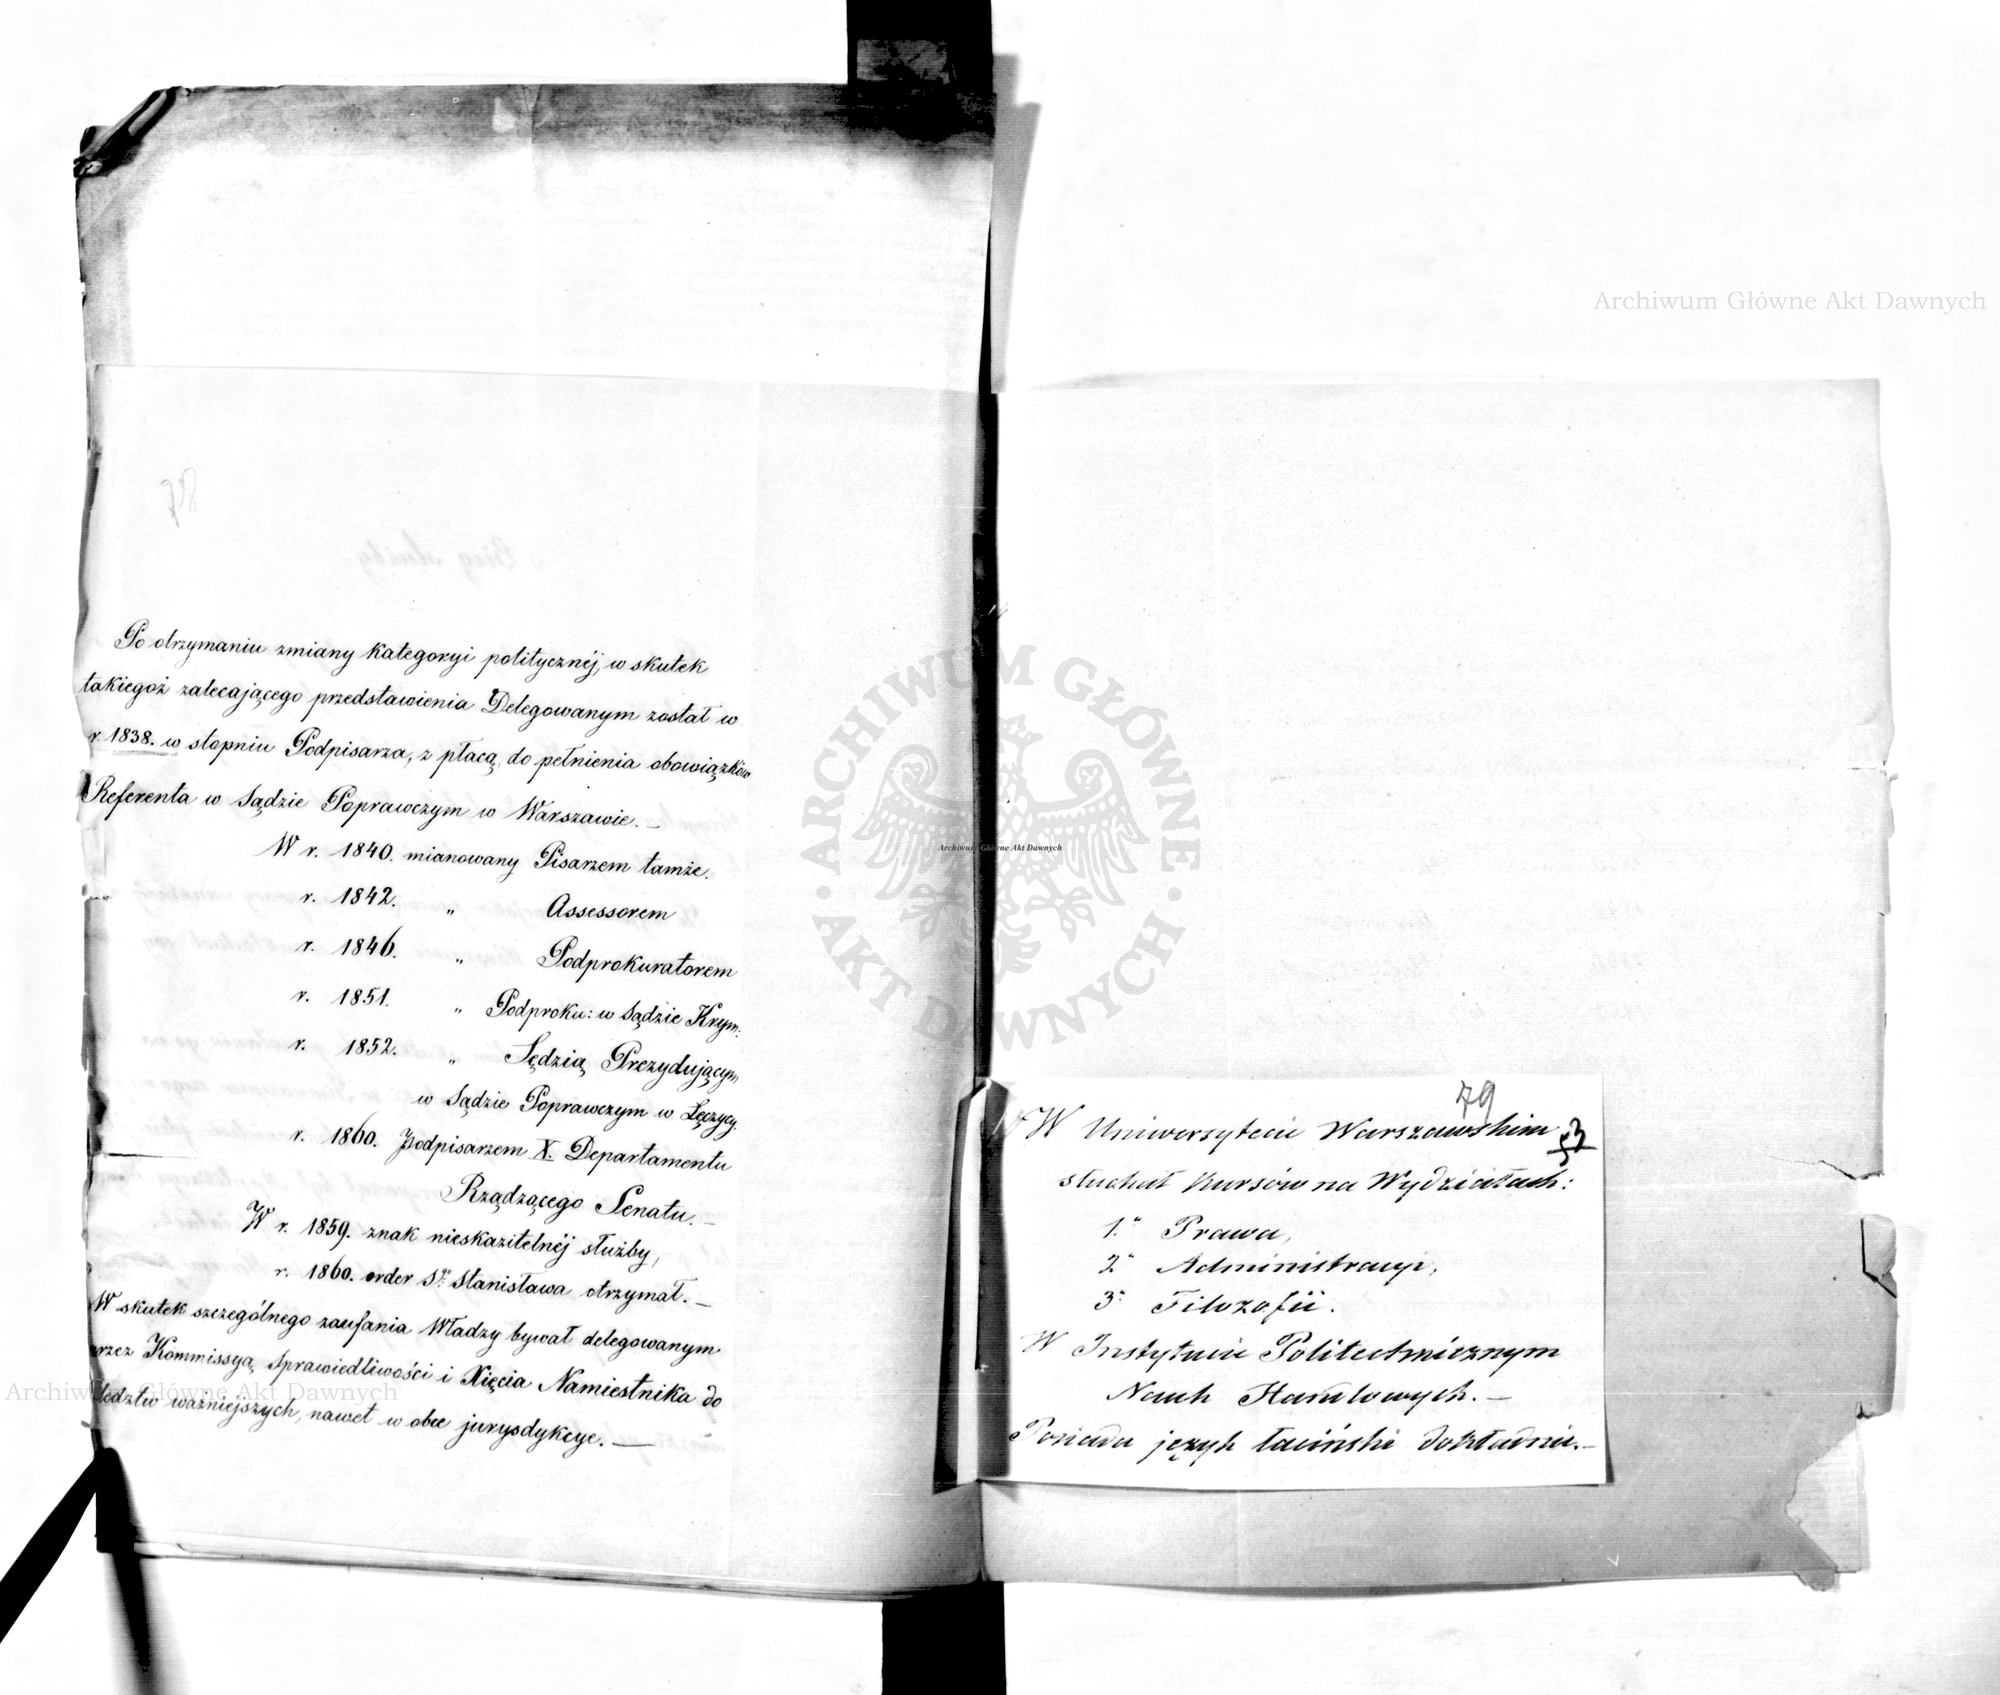 Po otrzymaniu zmiany kategoryi politycznéj, w skutek
takiegoż zalecającego przedstawienia Delegowanym został w
r. 1838. w stopniu Podpisarza, z płacą, do pełnienia obowiązków
Referenta w Sądzie Poprawczym w Warszawie. —
W r. 1840. mianowany Pisarzem tamże.
r. 1842. „ Assessorem
r. 1846. „ Podprokuratorem
r. 1851. „ Podproku: w Sądzie Krym:
r. 1852. „ Sędzią Prezydującym
w Sądzie Poprawczym w Łęczycy.
r. 1860. Podpisarzem X. Departamentu
Rządzącego Senatu. —
W r. 1859. znak nieskazitelnéj służby,
r. 1860. order Sgo Stanisława otrzymał. —
W skutek szczególnego zaufania Władzy bywał delegowanym
przez Kommissyą Sprawiedliwości i Xięcia Namiestnika do
śledztw ważniejszych, nawet w obce jurysdykcye. —
79
53
W Uniwersytecie Warszawskim
słuchał Kursów na Wydziałach:
1.° Prawa,
2.° Administracyi,
3.° Filozofii.
W Instytucie Politechnicznym
Nauk Handlowych. —
Posiada język łaciński dokładnie. —
Archiwum Główne Akt Dawnych
Archiwum Główne Akt Dawnych
Archiwum Główne Akt Dawnych
ARCHIWUM GŁÓWNE · AKT DAWNYCH ·